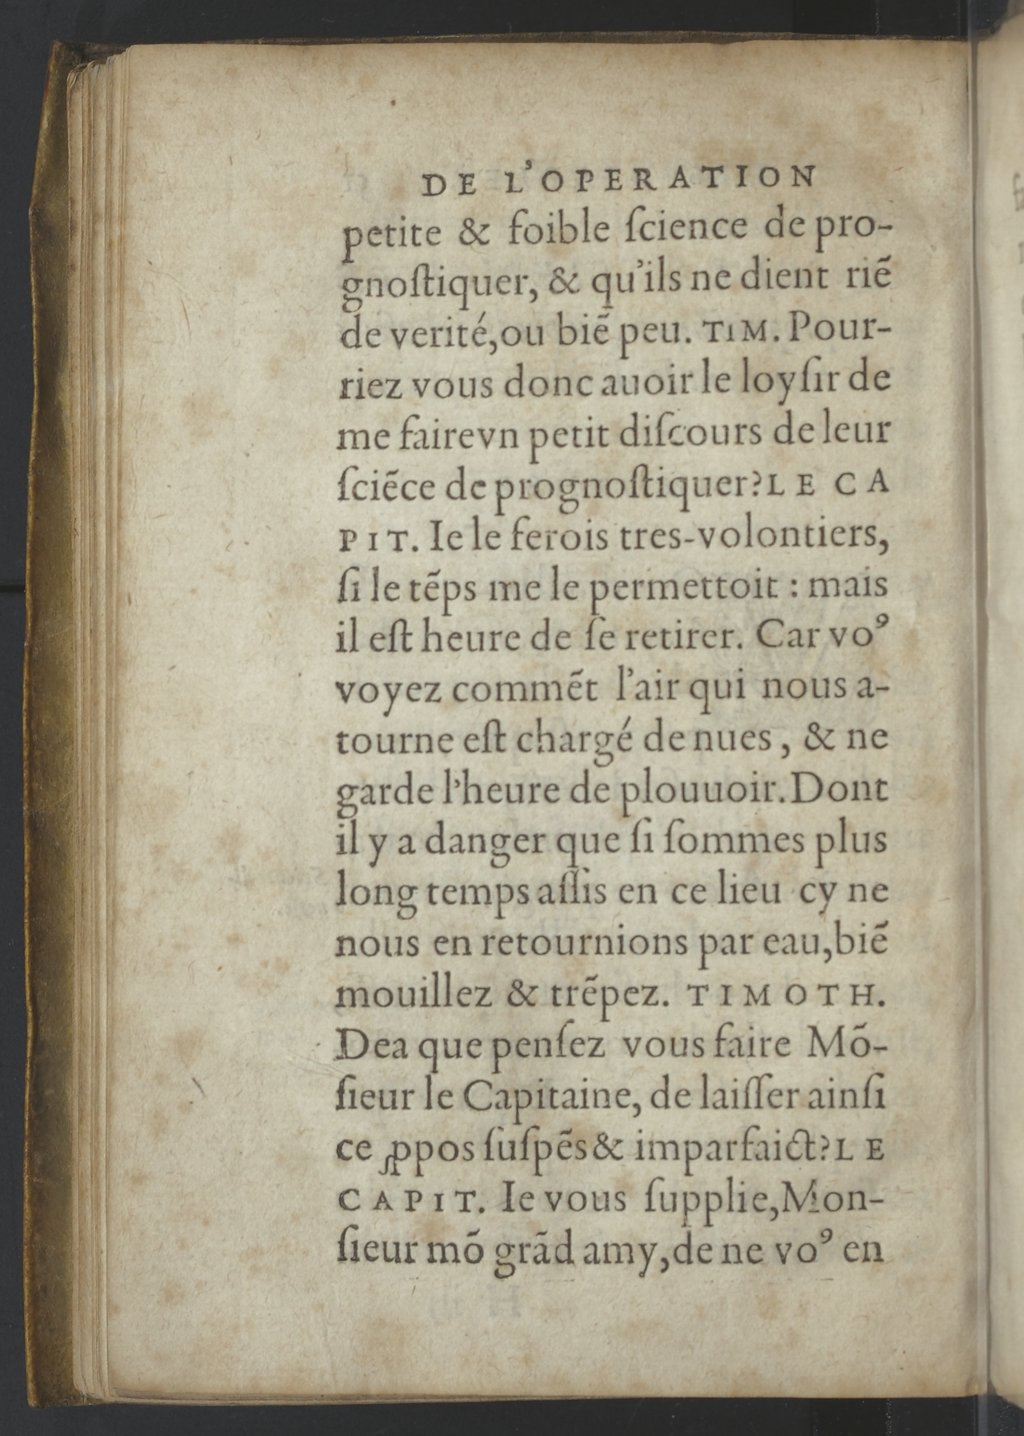 DE L'OPERATION
petite & foible ſcience de pro-
gnoſtiquer, & qu'ils ne dient riẽ
de verité,ou biẽ peu. TIM. Pour-
riez vous donc auoir le loyſir de
me fairevn petit diſcours de leur
ſciẽce de prognoſtiquer?LE CA
PIT. Ie le ferois tres-volontiers,
ſi le tẽps me le permettoit : mais
il eſt heure de ſe retirer. Car voꝰ
voyez commẽt l'air qui nous a-
tourne eſt chargé de nues, & ne
garde l'heure de plouuoir.Dont
il y a danger que ſi ſommes plus
long temps aſſis en ce lieu cy ne
nous en retournions par eau,biẽ
mouillez & trẽpez. TIMOTH.
Dea que penſez vous faire Mõ-
ſieur le Capitaine, de laiſſer ainſi
ce ꝓpos ſuſpẽs& imparfaict?LE
CAPIT. Ie vous ſupplie,Mon-
ſieur mõ grãd amy,de ne voꝰ en